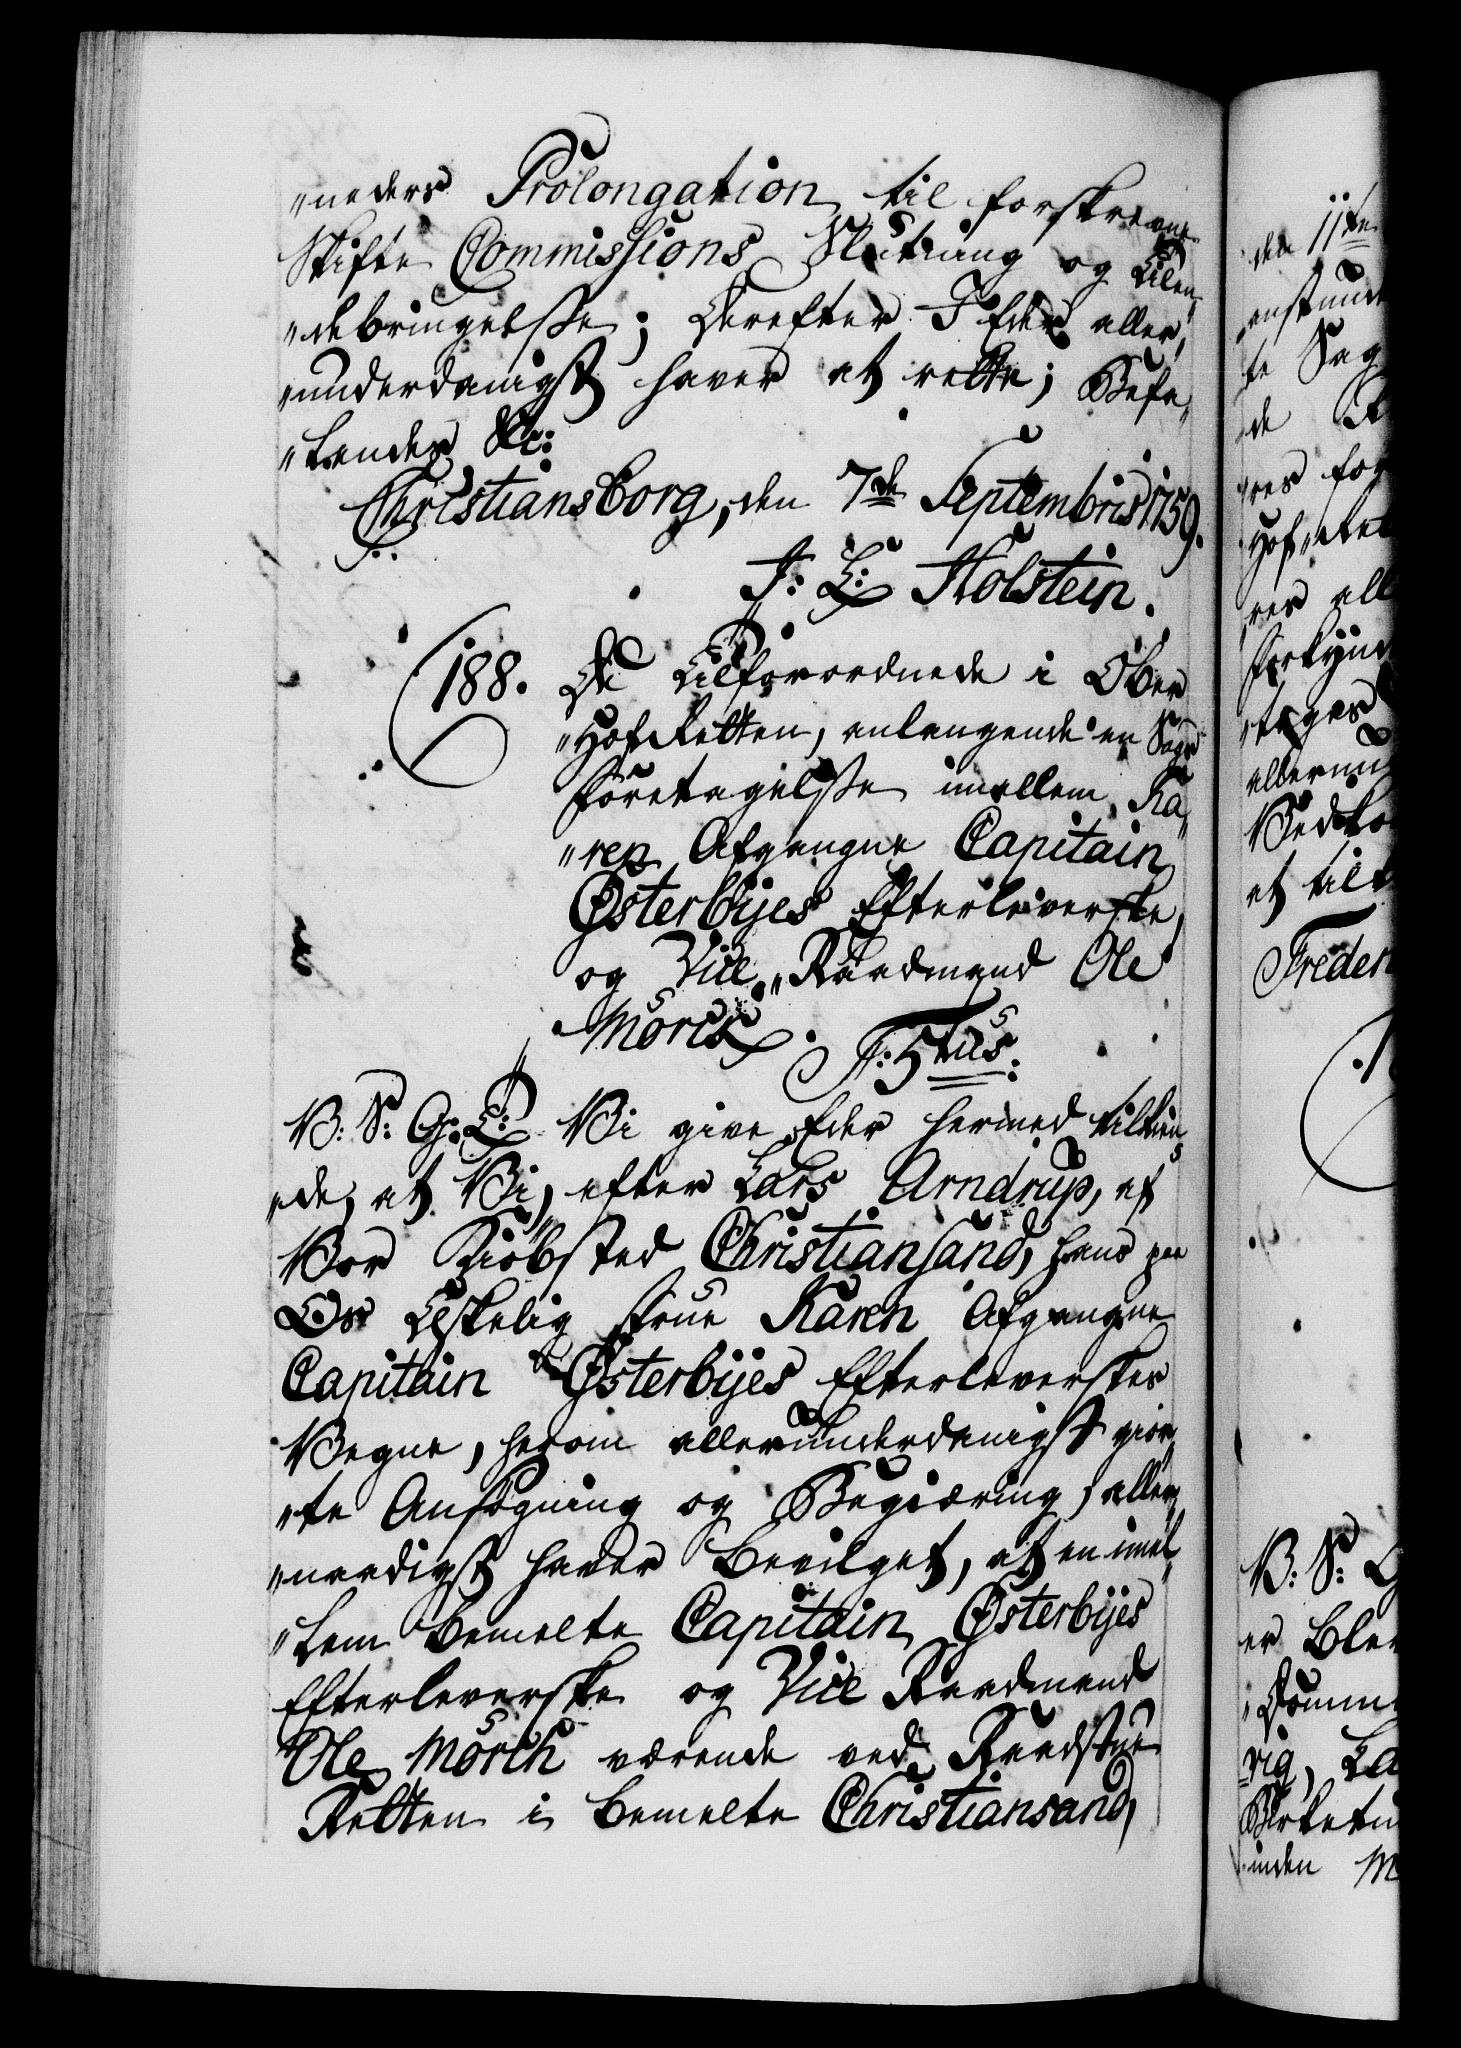 „neders Prolongation til forskrevne
Skifte Commissions Slutning og tilen„
„debringelsse; Derefter I Eder aller„
„underdanigst haver at rette; Befa„
„lendes &c:
Christiansborg, den 7de Septembris 1759.
J: L: Holstein.
188. De tilforordnede i Ober
„HofRetten, anlangende en Sags
foretagelsse imellem, Ka„
„ren Afgangne Capitain
Østerbijes Efterleverske,
og Vice„Raadmand Ole
Mörch. F: 5tus:
V: S: G: T: Vi give Eder hermed tilkien„
„de, at Vi, efter Lars Arndrup, af
Vor Kiøbsted Christiansand, hans paa
Os Elskelig Frue Karen Afgangne
Capitain Østerbijes Efterleverskes
Vegne, herom allerunderdanigst gior„
„te Ansøgning og Begiæring, aller„
„naadigst haver bevilget, at en imel„
„lem bemelte Capitain Østerbijes
Efterleverske og Vice Raadmand
Ole Mörch værende ved Raadstue
Retten i bemelte Christiansand,
den 11te
Sag
Freder
V: S: G